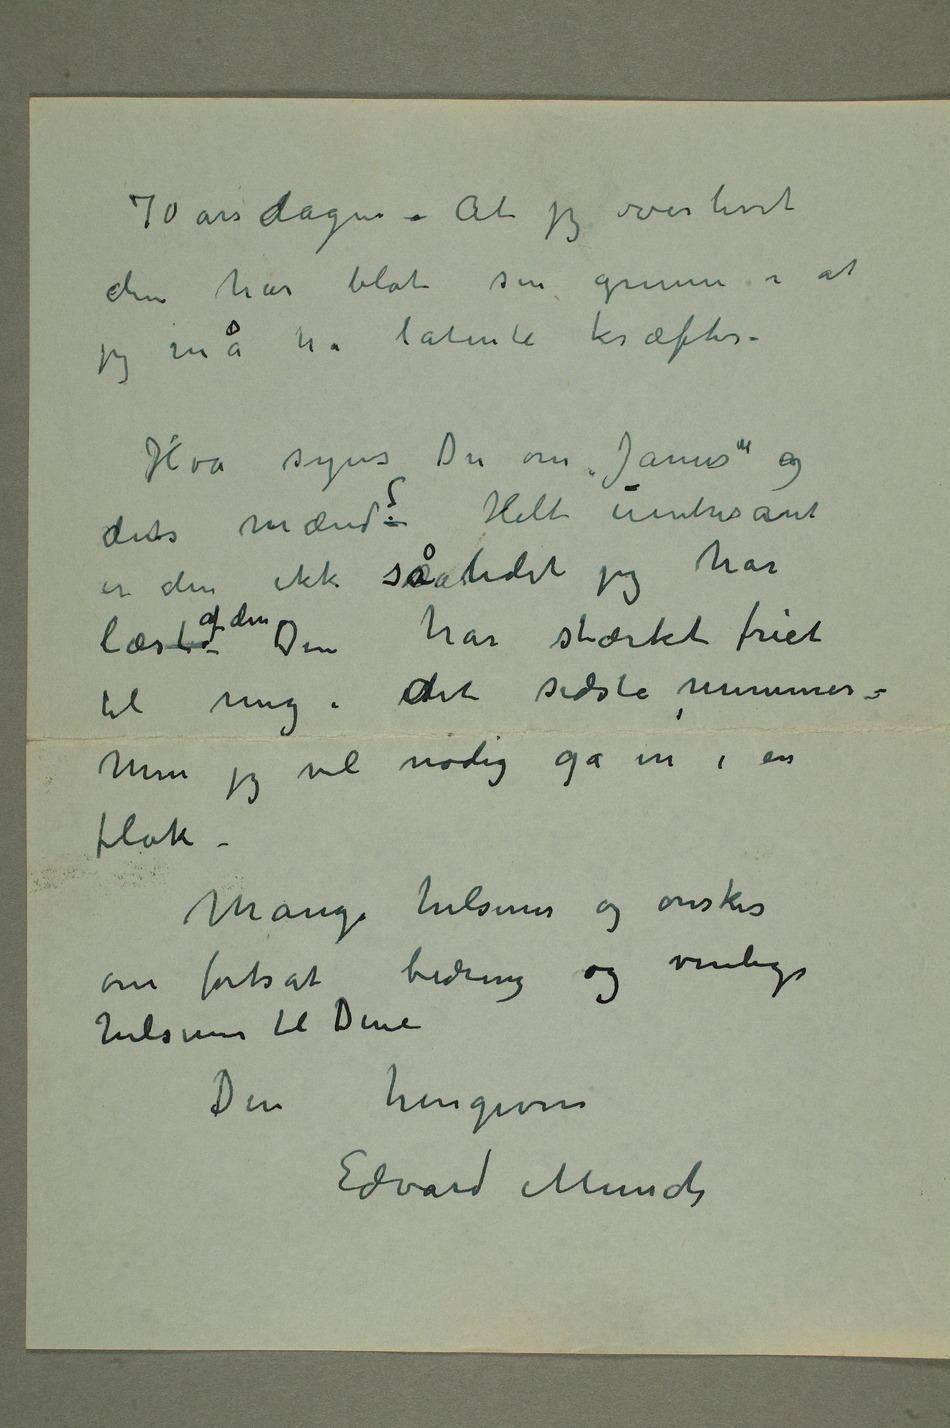 70 årsdagen. At jeg overlevet
den har blot sin grunn i at
jeg må ha latente kræfter.
Hva synes Du om „Janus" og
dets mænd? Helt uintresant
er den ikke såalidet jeg har
læst af den. Den har stærkt friet
til mig i det sidste nummer –
Men jeg vil nødig gå in i en
flok –
Mange hilsener og ønsker
om fortsat bedring og venlige
hilsener til Dine
Din hengivne
Edvard Munch